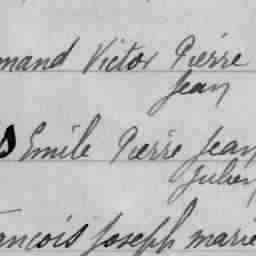 mand Victor Pierre
Jean
s Emile Pierre Jean
Julien
ancois Joseph marie